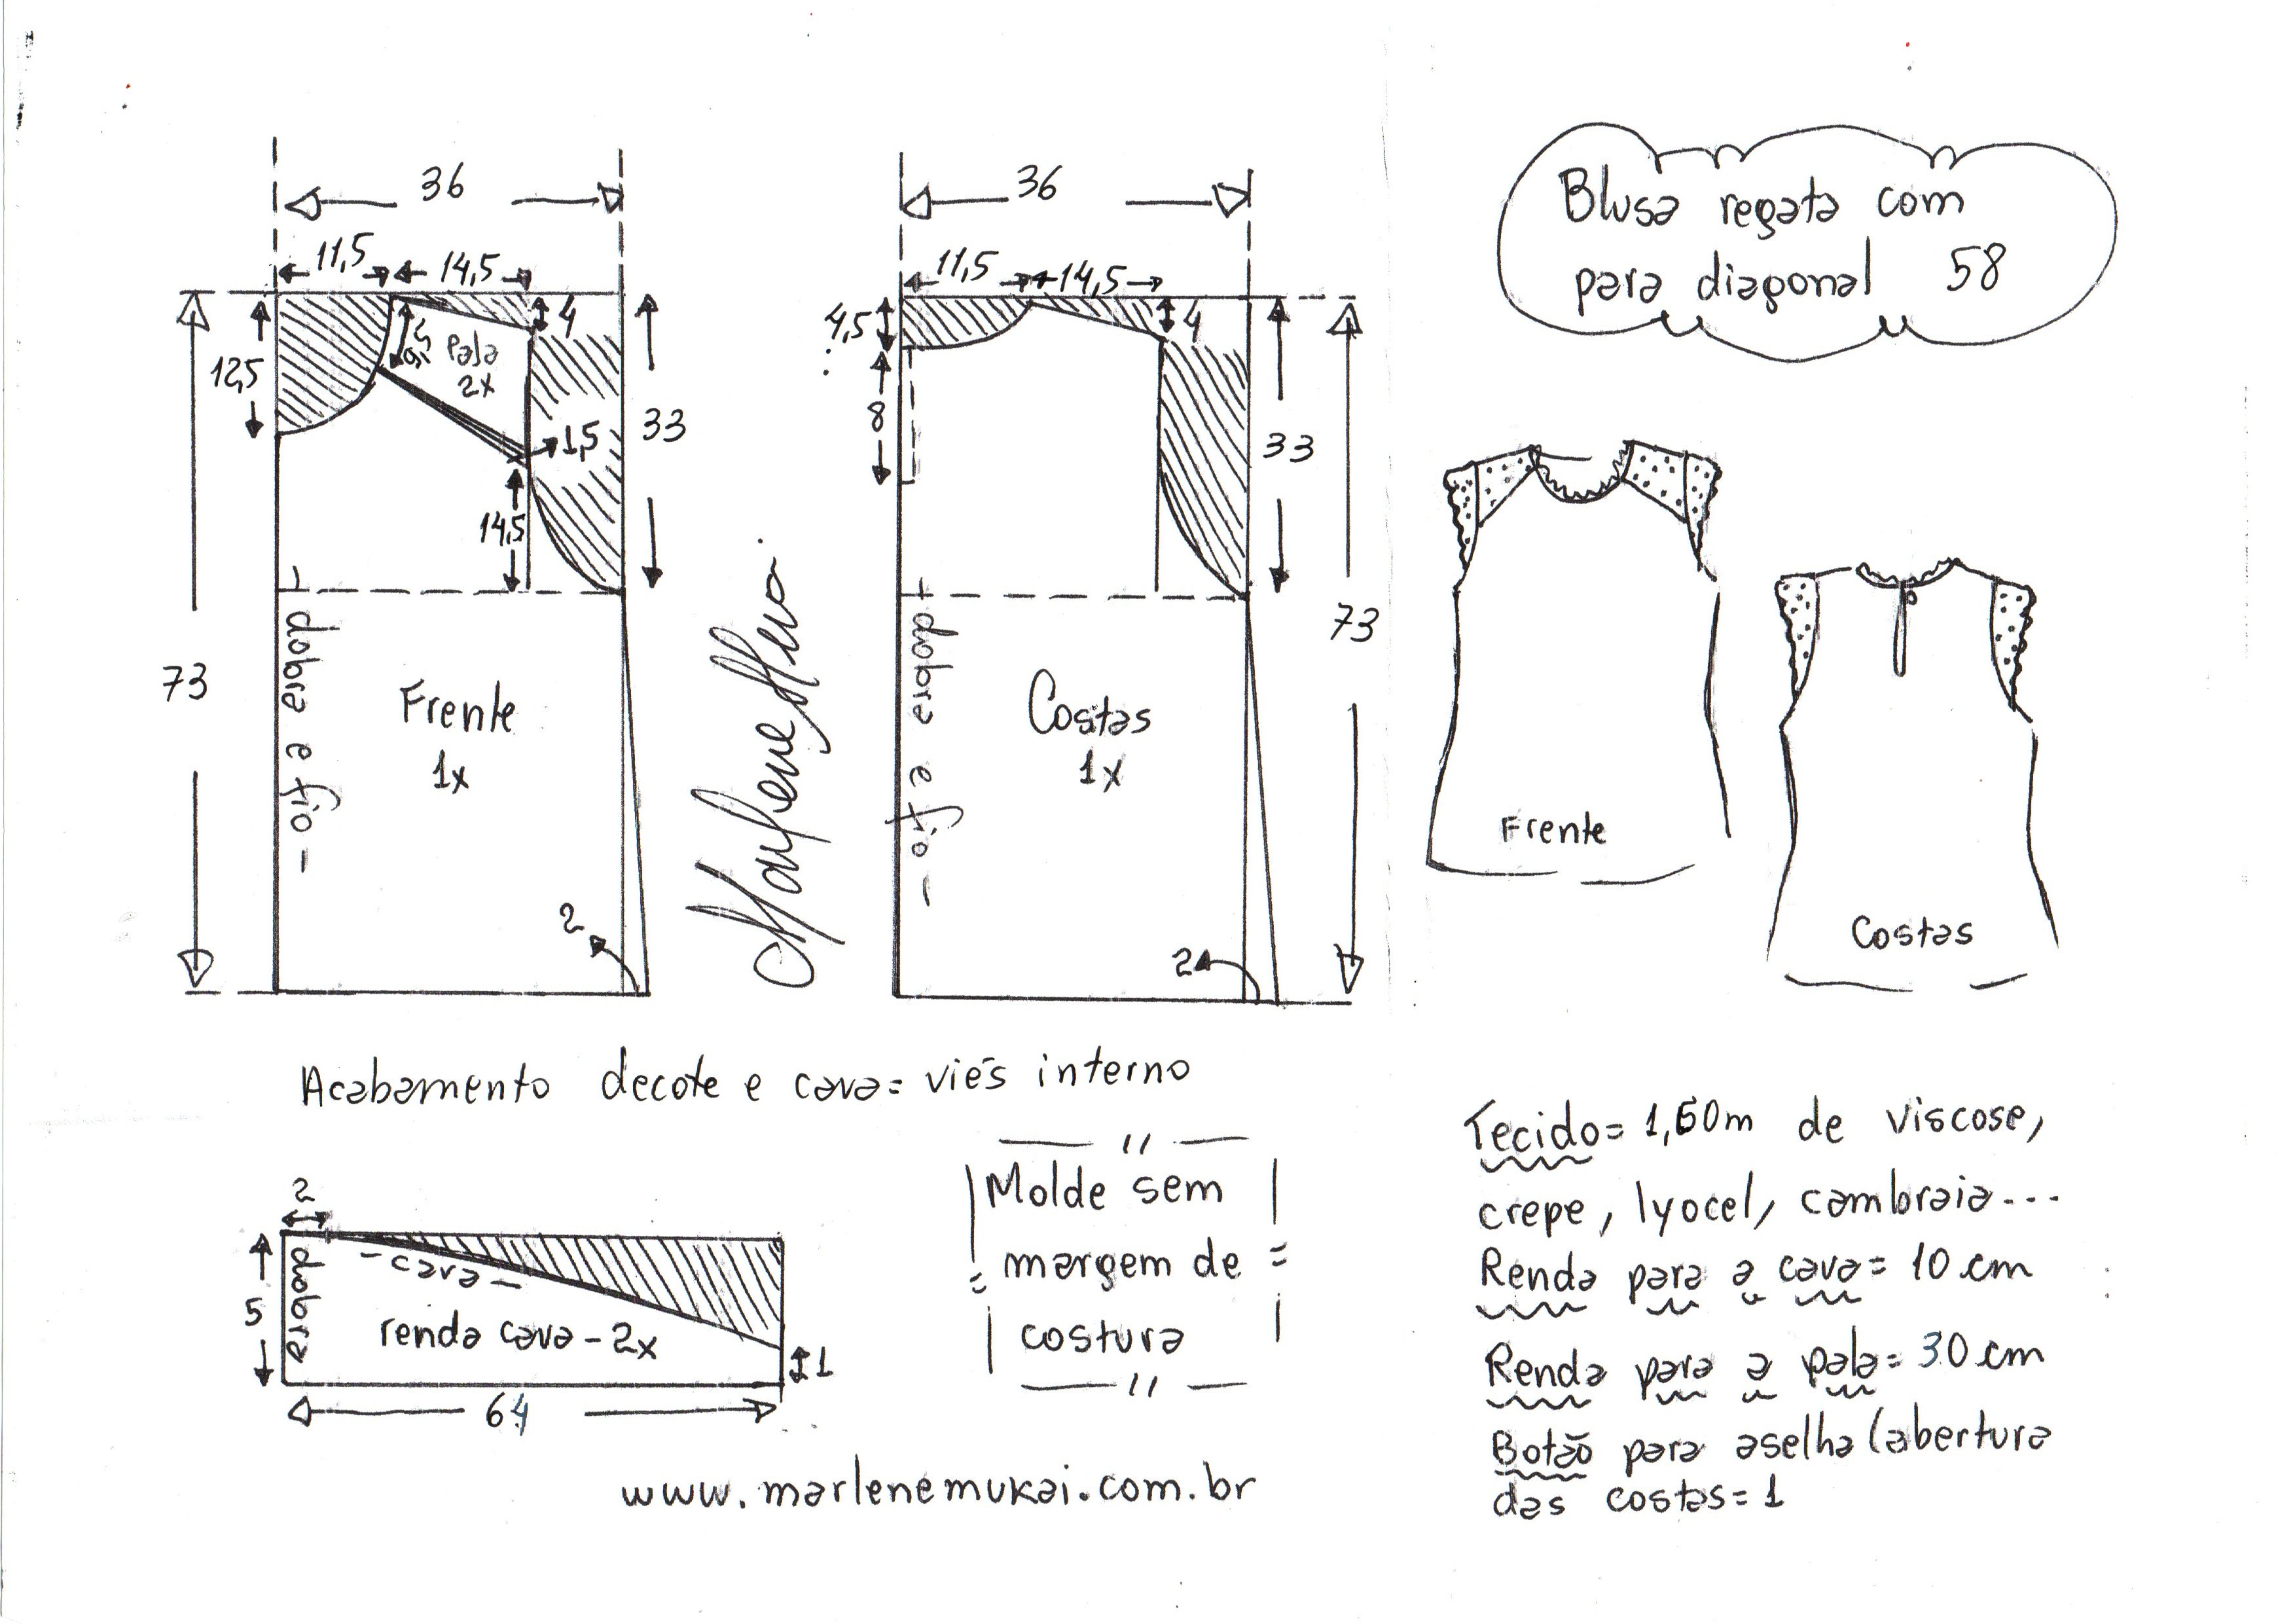 Blusa regata com
para diagonal 58
36
11,5
14,5
4
12,5
Pala
2x
1,5
33
14,5
73
- dobra e fio -
Frente
1x
2
36
11,5
14,5
4,5
4
8
33
73
- dobra e fio -
Costas
1x
2
Frente
Costas
Acabamento decote e cava= viés interno
2
dobra
- cava -
5
renda cava - 2x
1
64
"
Molde sem
margem de
costura
"
www.marlenemukai.com.br
Tecido= 1,60m de viscose,
crepe, lyocel, cambraia...
Renda para a cava= 10 cm
Renda para a pala= 30 cm
Botão para aselha (abertura
das costas= 1